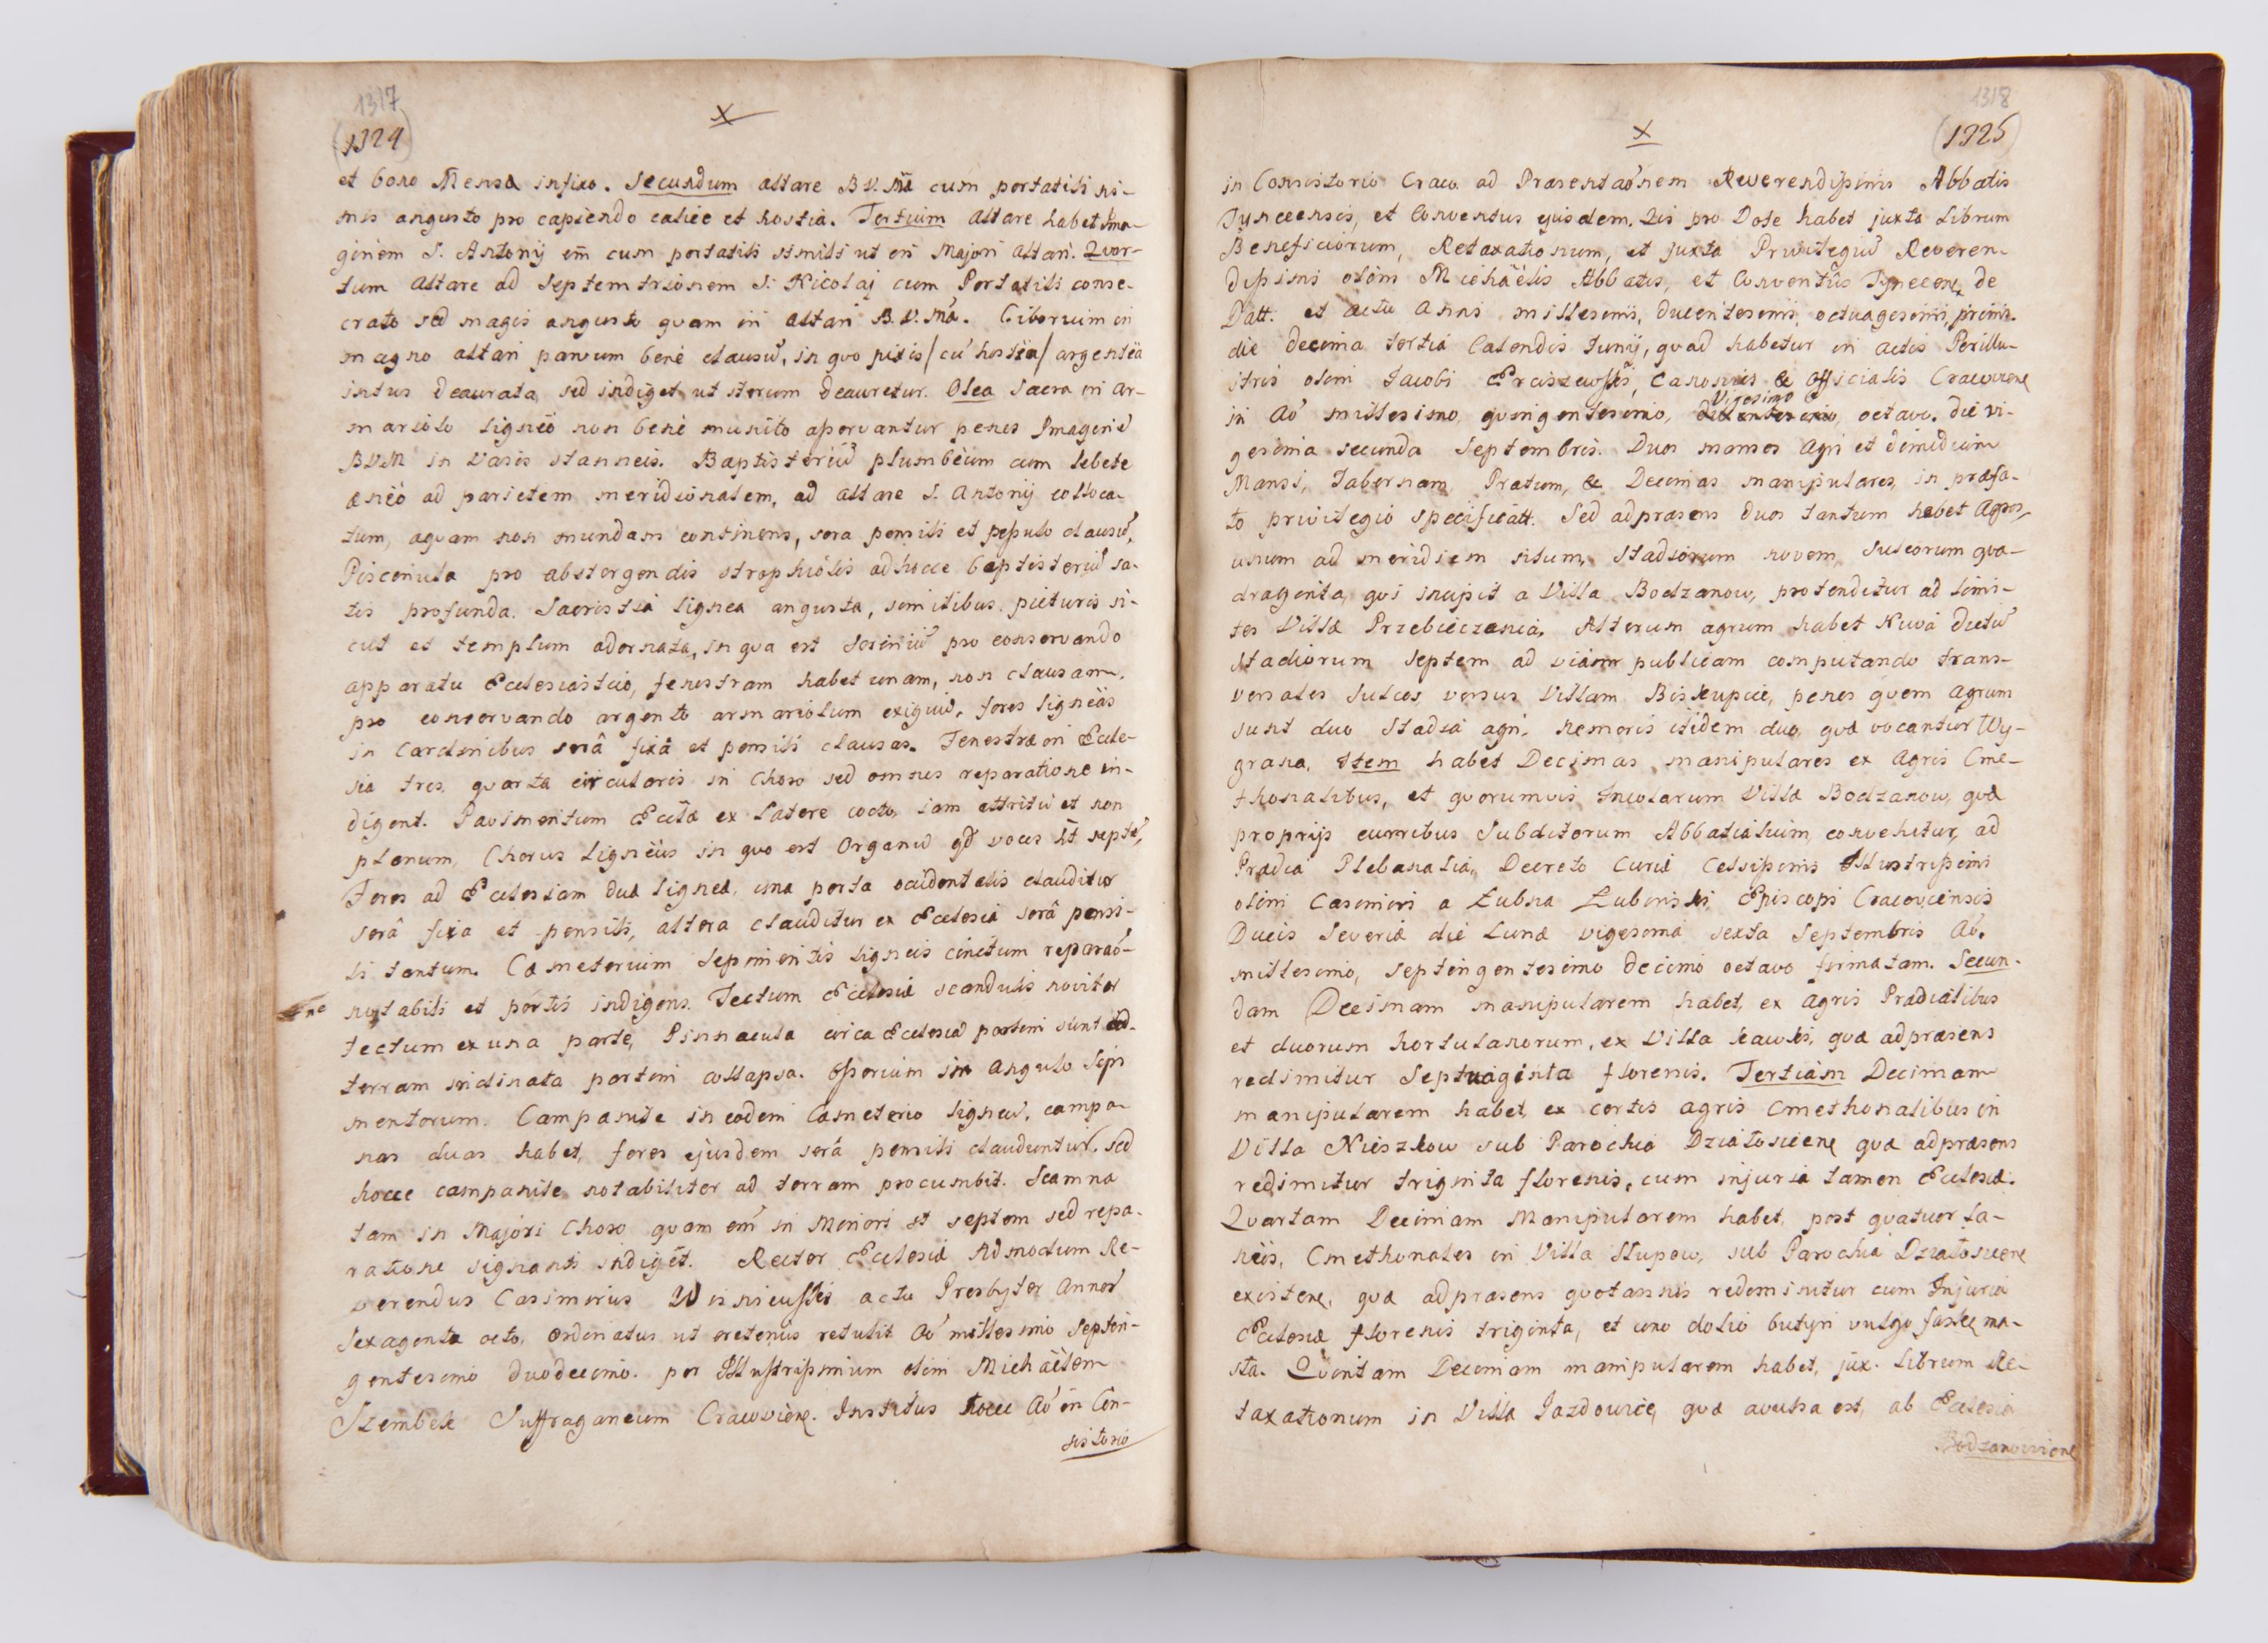 1317
(1324)
X
et bono Mensæ infixo. Secundum altare B.V.Mæ cum portatili ni-
mis angusto pro capiendo calice et hostia. Tertium Altare habet Ima-
ginem S. Antonij em̃ cum portatili simili ut in Majori Altari. Qvar-
tum Altare ad Septemtrionem S. Nicolai cum Portatili conse-
crato sed magis angusto qvam in altari B.V.Mæ. Ciborium in
magno altari parvum benè clausũ, in qvo pixis /cũ hostia/ argentea
intus deaurata, sed indiget, ut iterum deauretur. Olea Sacra in ar-
mariolo ligneo non benè munito aservantur penes Imaginẽ
BVM in Vasis stanneis. Baptisteriũ plumbeum cum lebete
æneo ad parietem meridionalem, ad altare S. Antonij colloca-
tum, aqvam non mundam continens, sera pensili et pepulo clausũ,
Piscinula pro abstergendis strophiolis ad hocce baptisteriũ sa-
tis profunda. Sacristia lignea angusta, similibus picturis si-
cut et templum adornata, in qva est Scriniũ pro conservando
apparatu Ecclesiastico, fenestram habet unam, non clausam.
pro conservando argento armariolum exiguũ, fores ligneas
in Cardinibus serâ fixâ et pensili clausas. Fenestræ in Eccle-
sia tres, qvarta circularis in Choro sed omnes reparatione in-
digent. Pavimentum Ecclæ ex latere cocto, iam attritũ et non
plenum, Chorus ligneus in qvo est Organũ qd̃ voces ht̃ septẽ,
Fores ad Ecclesiam duæ ligneæ, una porta occidentalis clauditur
serâ fixa et pensili, altera clauditur ex Ecclesia serâ pensi-
li tantum. Cæmeterium Sepimentis ligneis cinctum reparaõ-
ne notabili et portis indigens. Tectum Ecclesiæ scandulis noviter
tectum ex una parte, Pinnacula circa Ecclesiã partim sunt ad
terram inclinata partim collapsa. Osorium in angulo Sepi
mentorum. Campanile in eodem Cæmeterio ligneũ, campa-
nas duas habet, fores ejusdem serâ pensili clauduntur, sed
hocce campanile notabiliter ad terram procumbit. Scamna
tam in Majori Choro qvam em̃ in Minori st septem sed repa-
ratione signanti indigẽt. Rector Ecclesiæ Admodum Re-
verendus Casimirus Wisniewski actu Presbyter Annor̃
Sexaginta octo, ordinatus ut oretenus retulit Aõ millesimo Septin-
gentesimo duodecimo. per Illustrissimum olim Michaëlem
Szembek Suffraganeum Cracovien̄. Institutus hocce Aõ in Con-
sistorio
1318
(1325)
X
in Consistorio Crac. ad Præsentaõnem Reverendissimi Abbatis
Tyncensis, et Conventus ejusdem. Qvi pro Dote habet juxta Librum
Beneficiorum, Retaxationum, et juxta Privilegiũ Reveren-
dissimi olim Michaëlis Abbatis, et Conventûs Tynecen̄, de
Datt. et actu Anni millesimi, ducentesimi, octuagesimi, primi.
die decima tertia Calendis Junij, qvod habetur in actis Perillu-
stris olim Jacobi Erciszewski, Canonici & Officialis Cracovien̄
in Aõ millesimo, qvingentesimo, Vigesimo octavo. die vi-
gesima secunda Septembris. Duos mansos Agri et dimidium
Mansi, Tabernam, Pratum, & Decimas manipulares, in præfa-
to privilegio specificatt. Sed ad præsens duos tantum habet Agros,
unum ad meridiem situm, Stadiorum novem, Sulcorum qva-
draginta, qvi incipit a Villa Bodzanow, protenditur ad limi-
tes Villæ Przebieczania. Alterum agrum habet Niwa dictũ
stadiorum Septem ad viam publicam computando trans-
versales Sulcos, versus Villam Biskupice, penes qvem agrum
sunt duo Stadia agri, nemoris itidem duo, qvæ vocantur Wy-
grana, Item habet Decimas manipulares ex Agris Cme-
thonalibus, et qvorumvis Incolarum Villæ Bodzanow, qvæ
proprijs curribus Subditorum Abbatialium convehitur, ad
Prædia Plebanalia, Decreto Curiæ Celsissimi Illustrissimi
olim Casimiri a Łubna Łubinski, Episcopi Cracoviensis
Ducis Severiæ die Lunæ vigesima sexta Septembris Aõ.
millesimo, Septingentesimo decimo octavo firmatam. Secun-
dam Decimam manipularem habet, ex agris Prædialibus
et duorum hortulanorum, ex Villa Kawki, qvæ ad præsens
redimitur Septuaginta florenis. Tertiam Decimam
manipularem habet, ex certis agris Cmethonalibus in
Villa Nieszkow sub Parochia Dziatoszicen̄ qvæ ad præsens
redimitur triginta florenis, cum injuria tamen Ecclesiæ.
Qvartam Decimam Manipularem habet, post qvatuor la-
neis, Cmethonales in Villa Słupow, sub Parochia Dziatoszicen̄
existen̄, qvæ ad præsens qvotannis redemitur cum Injuria
Ecclesiæ florenis triginta, et uno dolio butyri vulgo faskę ma-
sła. Qvintam Decimam manipularem habet, jux. librum Re-
taxationum in Villa Jazdowice, qvæ avulsa est, ab Ecclesia
Bodzanovien̄